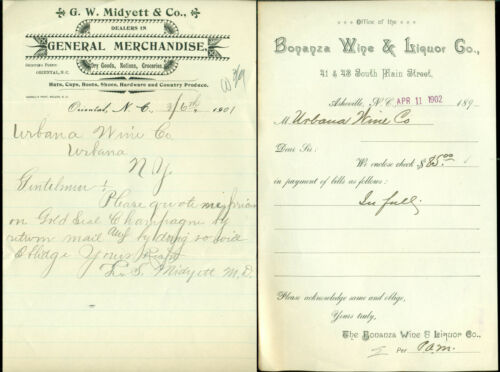 G. W. Midyett & Co.,
DEALERS IN
GENERAL MERCHANDISE,
Dry Goods, Notions, Groceries,
ORIENTAL, N.C.
Hats, Caps, Boots, Shoes, Hardware and Country Produce.
Oriental, N. C. 3/6th 1901
Urbana Wine Co
Urbana
N. Y.
Gentilmen :
Please quote me prices
on Gold Seal Champagne by
return mail by doing so will
Oblidge Yours Respt
Midyett M. D.
Office of the
Bonanza Wine & Liquor Co.,
41 & 43 South Main Street,
Asheville, N. C., APR 11 1902 189
M Urbana Wine Co
Dear Sir:
We enclose check $85.00
in payment of bills as follows:
In full,
Please acknowledge same and oblige,
Yours truly,
The Bonanza Wine & Liquor Co.,
Per